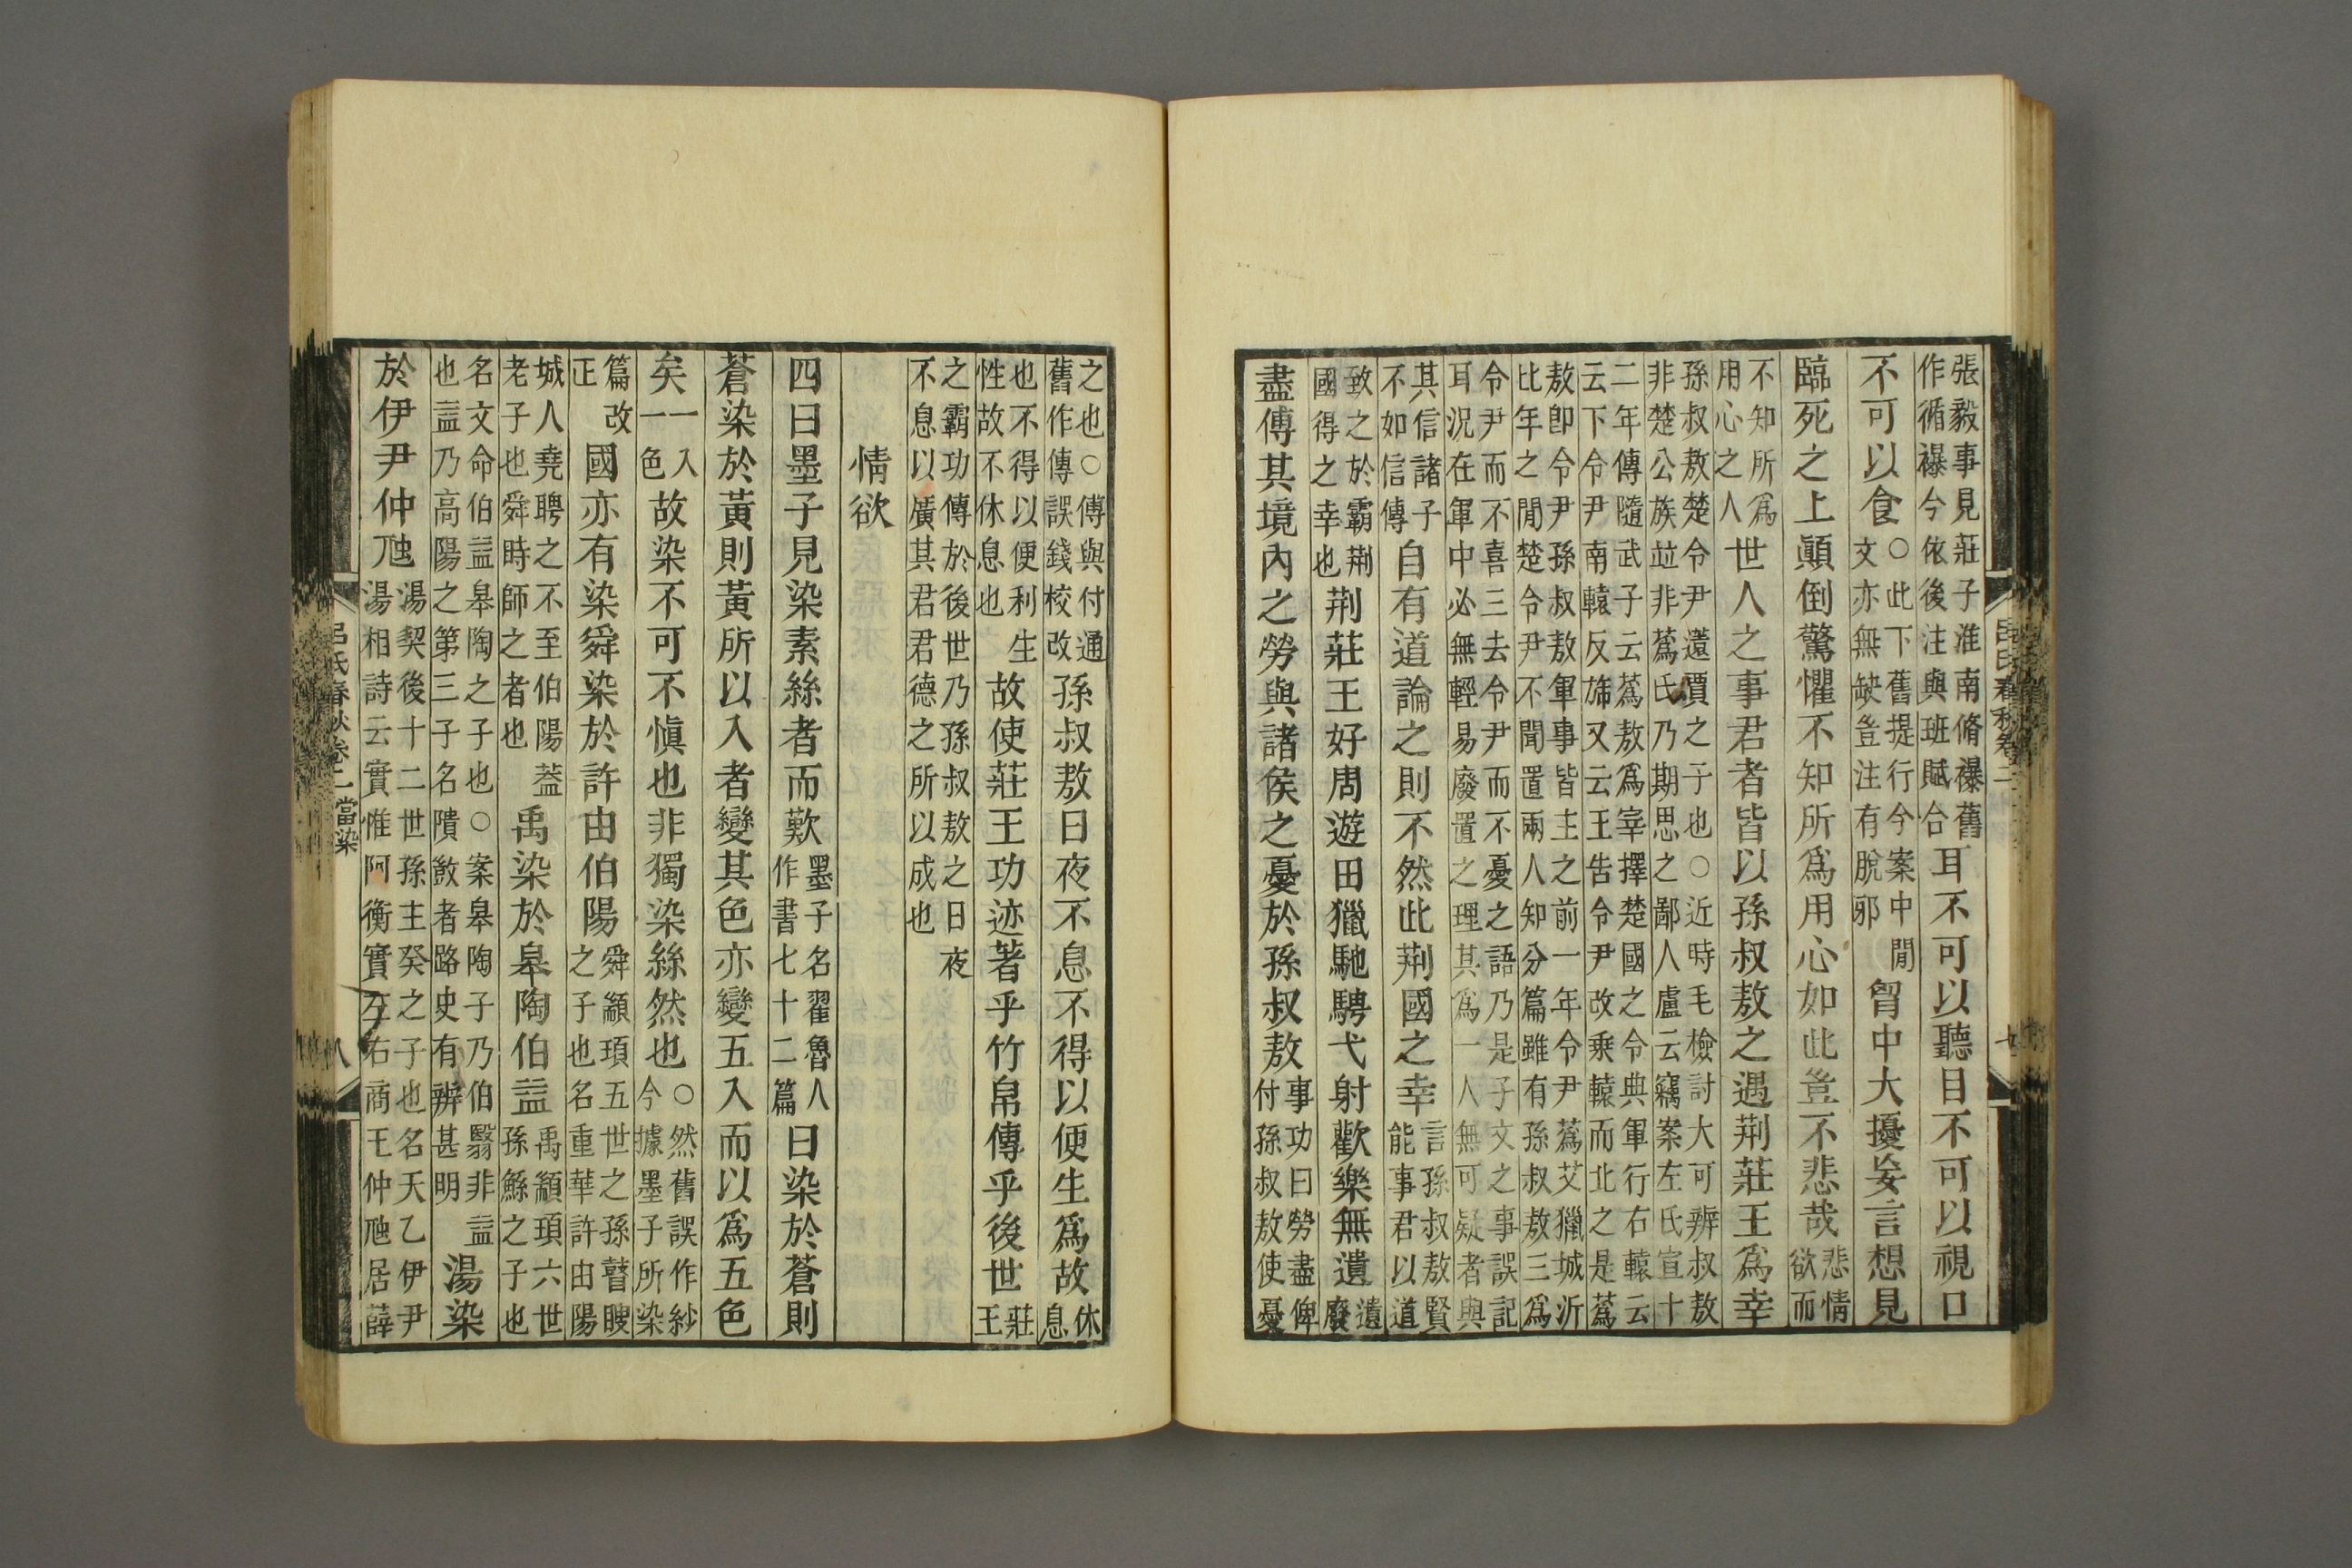 張毅事見莊子淮南脩襮舊作循襮今依後注與班賦合耳不可以聽目不可以視口
不可以食○此下舊提行今案中閒文亦無缺豈注有脫邪胷中大擾妄言想見
臨死之上顚倒驚懼不知所爲用心如此豈不悲哉悲情欲而
不知所爲用心之人世人之事君者皆以孫叔敖之遇荆莊王爲幸
孫叔敖楚令尹薳賈之子也○近時毛檢討大可辨叔敖非楚公族竝非蒍氏乃期思之鄙人盧云竊案左氏宣十
二年傳隨武子云蒍敖爲宰擇楚國之令典軍行右轅云云下令尹南轅反斾又云王告令尹改乘轅而北之是蒍
敖卽令尹孫叔敖軍事皆主之前一年令尹蒍艾獵城沂比年之閒楚令尹不聞置兩人知分篇雖有孫叔敖三爲
令尹而不喜三去令尹而不憂之語乃是子文之事誤記耳況在軍中必無輕易廢置之理其爲一人無可疑者與
其信諸子不如信傳自有道論之則不然此荆國之幸言孫叔敖賢能事君以道
致之於霸荆國得之幸也荆莊王好周遊田獵馳騁弋射歡樂無遺遺廢
盡傅其境內之勞與諸侯之憂於孫叔敖事功曰勞盡俾付孫叔敖使憂
之也○傅與付通舊作傳誤錢校改孫叔敖日夜不息不得以便生爲故休息
也不得以便利生性故不休息也故使莊王功迹著乎竹帛傳乎後世莊王
之霸功傳於後世乃孫叔敖之日夜不息以廣其君君德之所以成也
情欲
四曰墨子見染素絲者而歎墨子名翟魯人作書七十二篇曰染於蒼則
蒼染於黃則黃所以入者變其色亦變五入而以爲五色
矣一入一色故染不可不愼也非獨染絲然也○然舊誤作紗今據墨子所染
篇改正國亦有染舜染於許由伯陽舜顓頊五世之孫瞽瞍之子也名重華許由陽
城人堯聘之不至伯陽葢老子也舜時師之者也禹染於皋陶伯益禹顓頊六世孫鯀之子也
名文命伯益皋陶之子也○案皋陶子乃伯翳非益也益乃高陽之第三子名隤敳者路史有辨甚明湯染
於伊尹仲虺湯契後十二世孫主癸之子也名天乙伊尹湯相詩云實惟阿衡實左右商王仲虺居薛
呂氏春秋卷二 當染
八